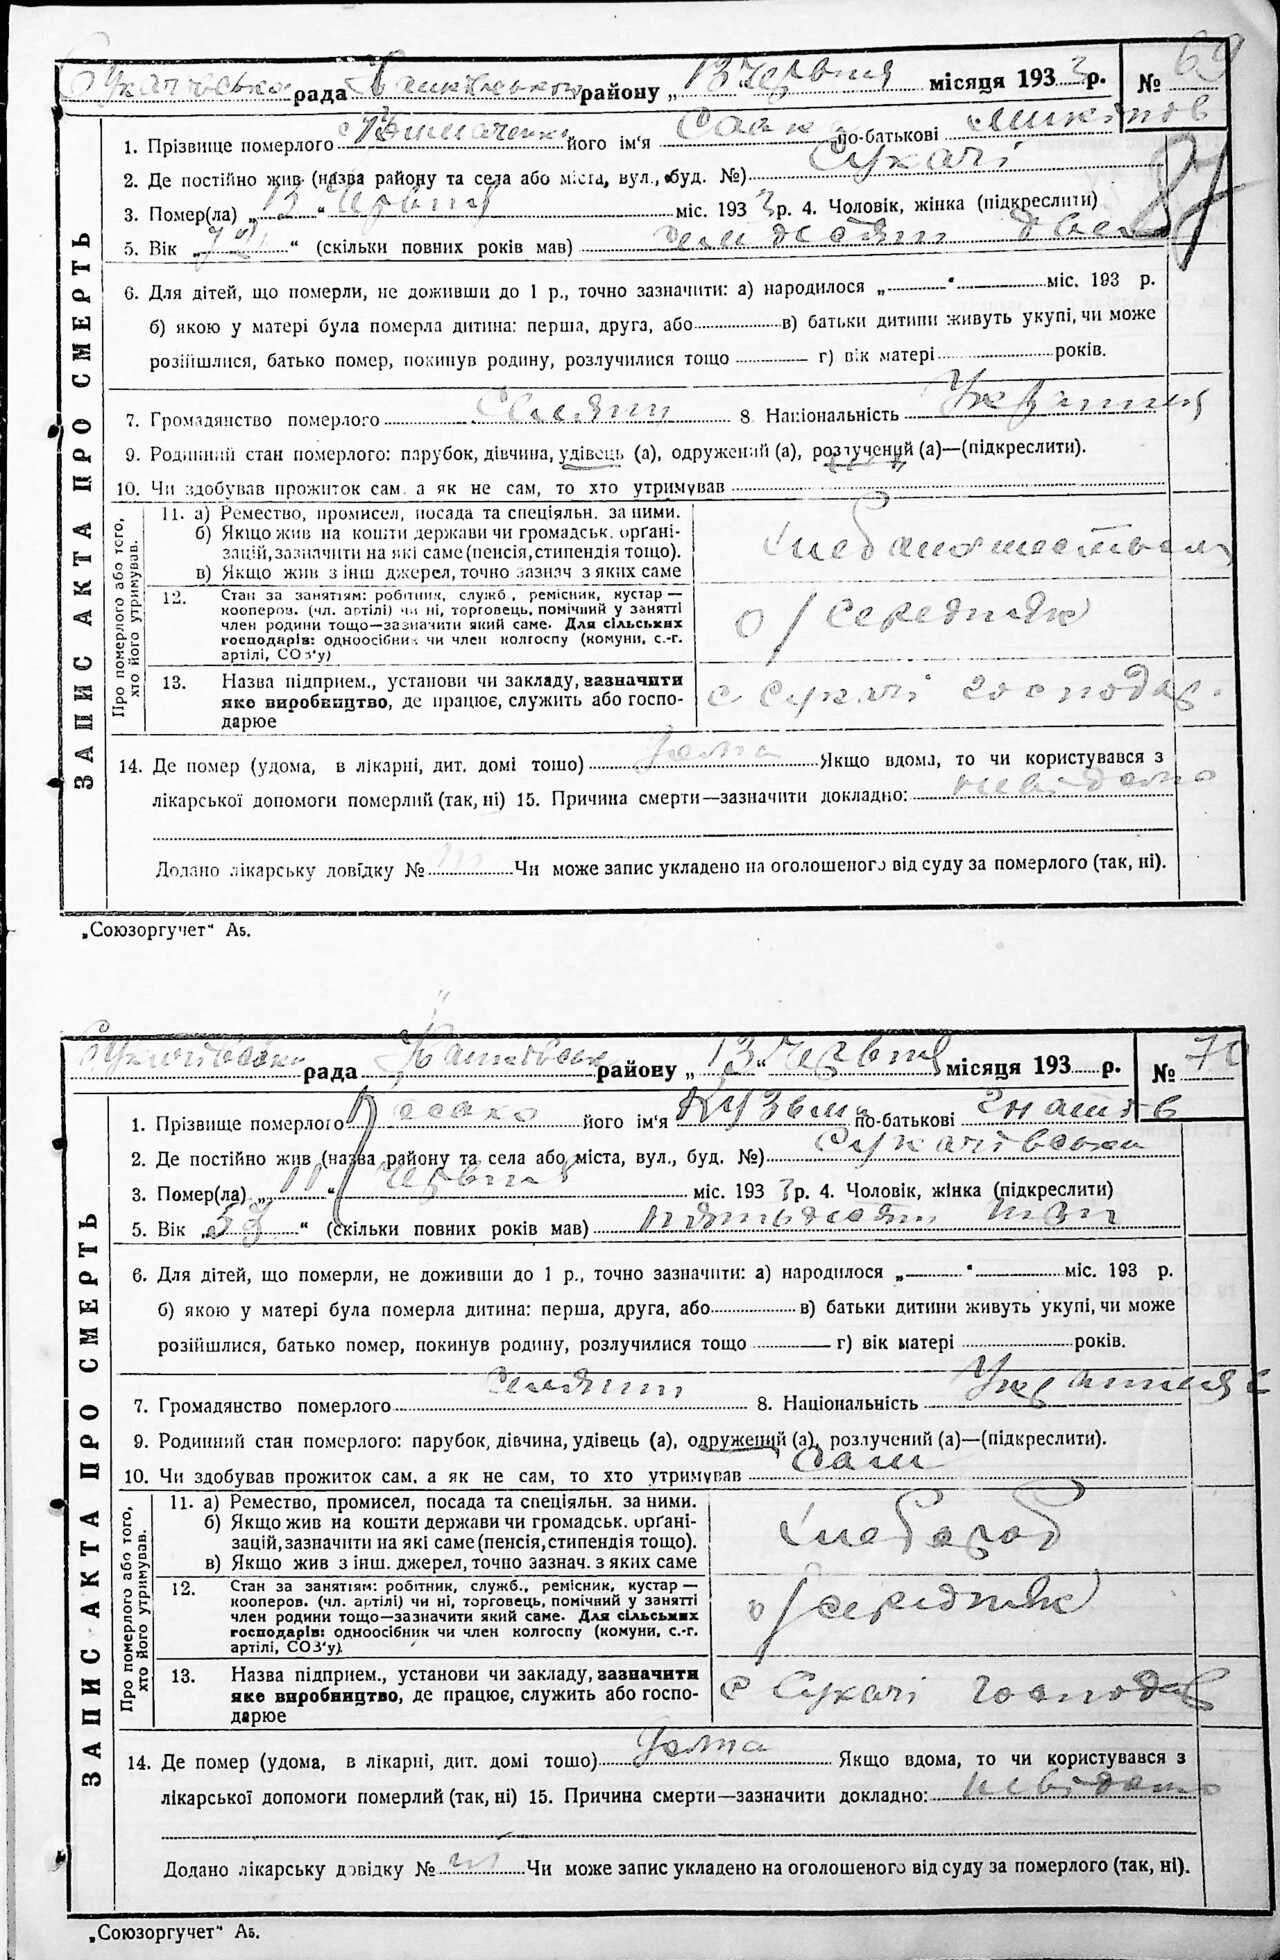 Сукачівська рада району „ 13 " Червня місяця 193 3 р. № 69
1. Прізвище померлого його ім'я Савка по-батькові Микитов
2. Де постійно жив (назва району та села або міста, вул., буд. №) Сукачі
87
3. Помер(ла) „ 13 " Червня міс. 193 3 р. 4. Чоловік, жінка (підкреслити)
5. Вік „ 72 " (скільки повних років мав) семдесят два
6. Для дітей, що померли, не доживши до 1 р., точно зазначити: а) народилося „ " міс. 193 р.
б) якою у матері була померла дитина: перша, друга, або в) батьки дитини живуть укупі, чи може
розійшлися, батько помер, покинув родину, розлучилися тощо г) вік матері років.
7. Громадянство померлого Селянин 8 Національність Українець
9. Родинний стан померлого: парубок, дівчина, удівець (а), одружений (а), розлучений (а)—(підкреслити).
10. Чи здобував прожиток сам, а як не сам, то хто утримував
ЗАПИС АКТА ПРО СМЕРТЬ
Про померлого або того, хто його утримував.
11. а) Ремество, промисел, посада та спеціяльн. за ними.
б) Якщо жив на кошти держави чи громадськ. орґані-
зацій, зазначити на які саме (пенсія, стипендія тощо).
в) Якщо жив з інш джерел, точно зазнач з яких саме
12. Стан за занятіям: робітник, служб., ремісник, кустар —
кооперов. (чл. артілі) чи ні, торговець, помічний у занятті
член родини тощо—зазначити який саме. Для сільських
господарів: одноосібник чи член колгоспу (комуни, с.-г.
артілі, СОЗ'у)
о/середняк
13. Назва підприєм., установи чи закладу, зазначити
яке виробництво, де працює, служить або госпо-
дарює
с Сукачі господар.
14. Де помер (удома, в лікарні, дит. домі тощо) дома Якщо вдома, то чи користувався з
лікарської допомоги померлий (так, ні) 15. Причина смерти—зазначити докладно: невідомо
Додано лікарську довідку № Чи може запис укладено на оголошеного від суду за померлого (так, ні).
„Союзоргучет" А5.
Сукачівська рада району „ 13 " Червня місяця 193 р. № 70
1. Прізвище померлого його ім'я Кузьма по-батькові Гнатів
2. Де постійно жив (назва району та села або міста, вул., буд. №) Сукачівська
3. Помер(ла) „ 11 " Червня міс. 193 3 р. 4. Чоловік, жінка (підкреслити)
5. Вік „ 53 " (скільки повних років мав) пятьдесят три
6. Для дітей, що померли, не доживши до 1 р., точно зазначити: а) народилося „ " міс. 193 р.
б) якою у матері була померла дитина: перша, друга, або в) батьки дитини живуть укупі, чи може
розійшлися, батько помер, покинув родину, розлучилися тощо г) вік матері років.
7. Громадянство померлого Селянин 8. Національність Українець
9. Родинний стан померлого: парубок, дівчина, удівець (а), одружений (а), розлучений (а)—(підкреслити).
10. Чи здобував прожиток сам, а як не сам, то хто утримував Сам
ЗАПИС АКТА ПРО СМЕРТЬ
Про померлого або того, хто його утримував.
11. а) Ремество, промисел, посада та спеціяльн. за ними.
б) Якщо жив на кошти держави чи громадськ. орґані-
зацій, зазначити на які саме (пенсія, стипендія тощо).
в) Якщо жив з інш. джерел, точно зазнач. з яких саме
хлебороб
12. Стан за занятіям: робітник, служб., ремісник, кустар —
кооперов. (чл. артілі) чи ні, торговець, помічний у занятті
член родини тощо—зазначити який саме. Для сільських
господарів: одноосібник чи член колгоспу (комуни, с.-г.
артілі, СОЗ'у).
о/середняк
13. Назва підприєм., установи чи закладу, зазначити
яке виробництво, де працює, служить або госпо-
дарює
с Сукачі господар
14. Де помер (удома, в лікарні, дит. домі тощо) дома Якщо вдома, то чи користувався з
лікарської допомоги померлий (так, ні) 15. Причина смерти—зазначити докладно: невідомо
Додано лікарську довідку № Чи може запис укладено на оголошеного від суду за померлого (так, ні).
„Союзоргучет" А5.